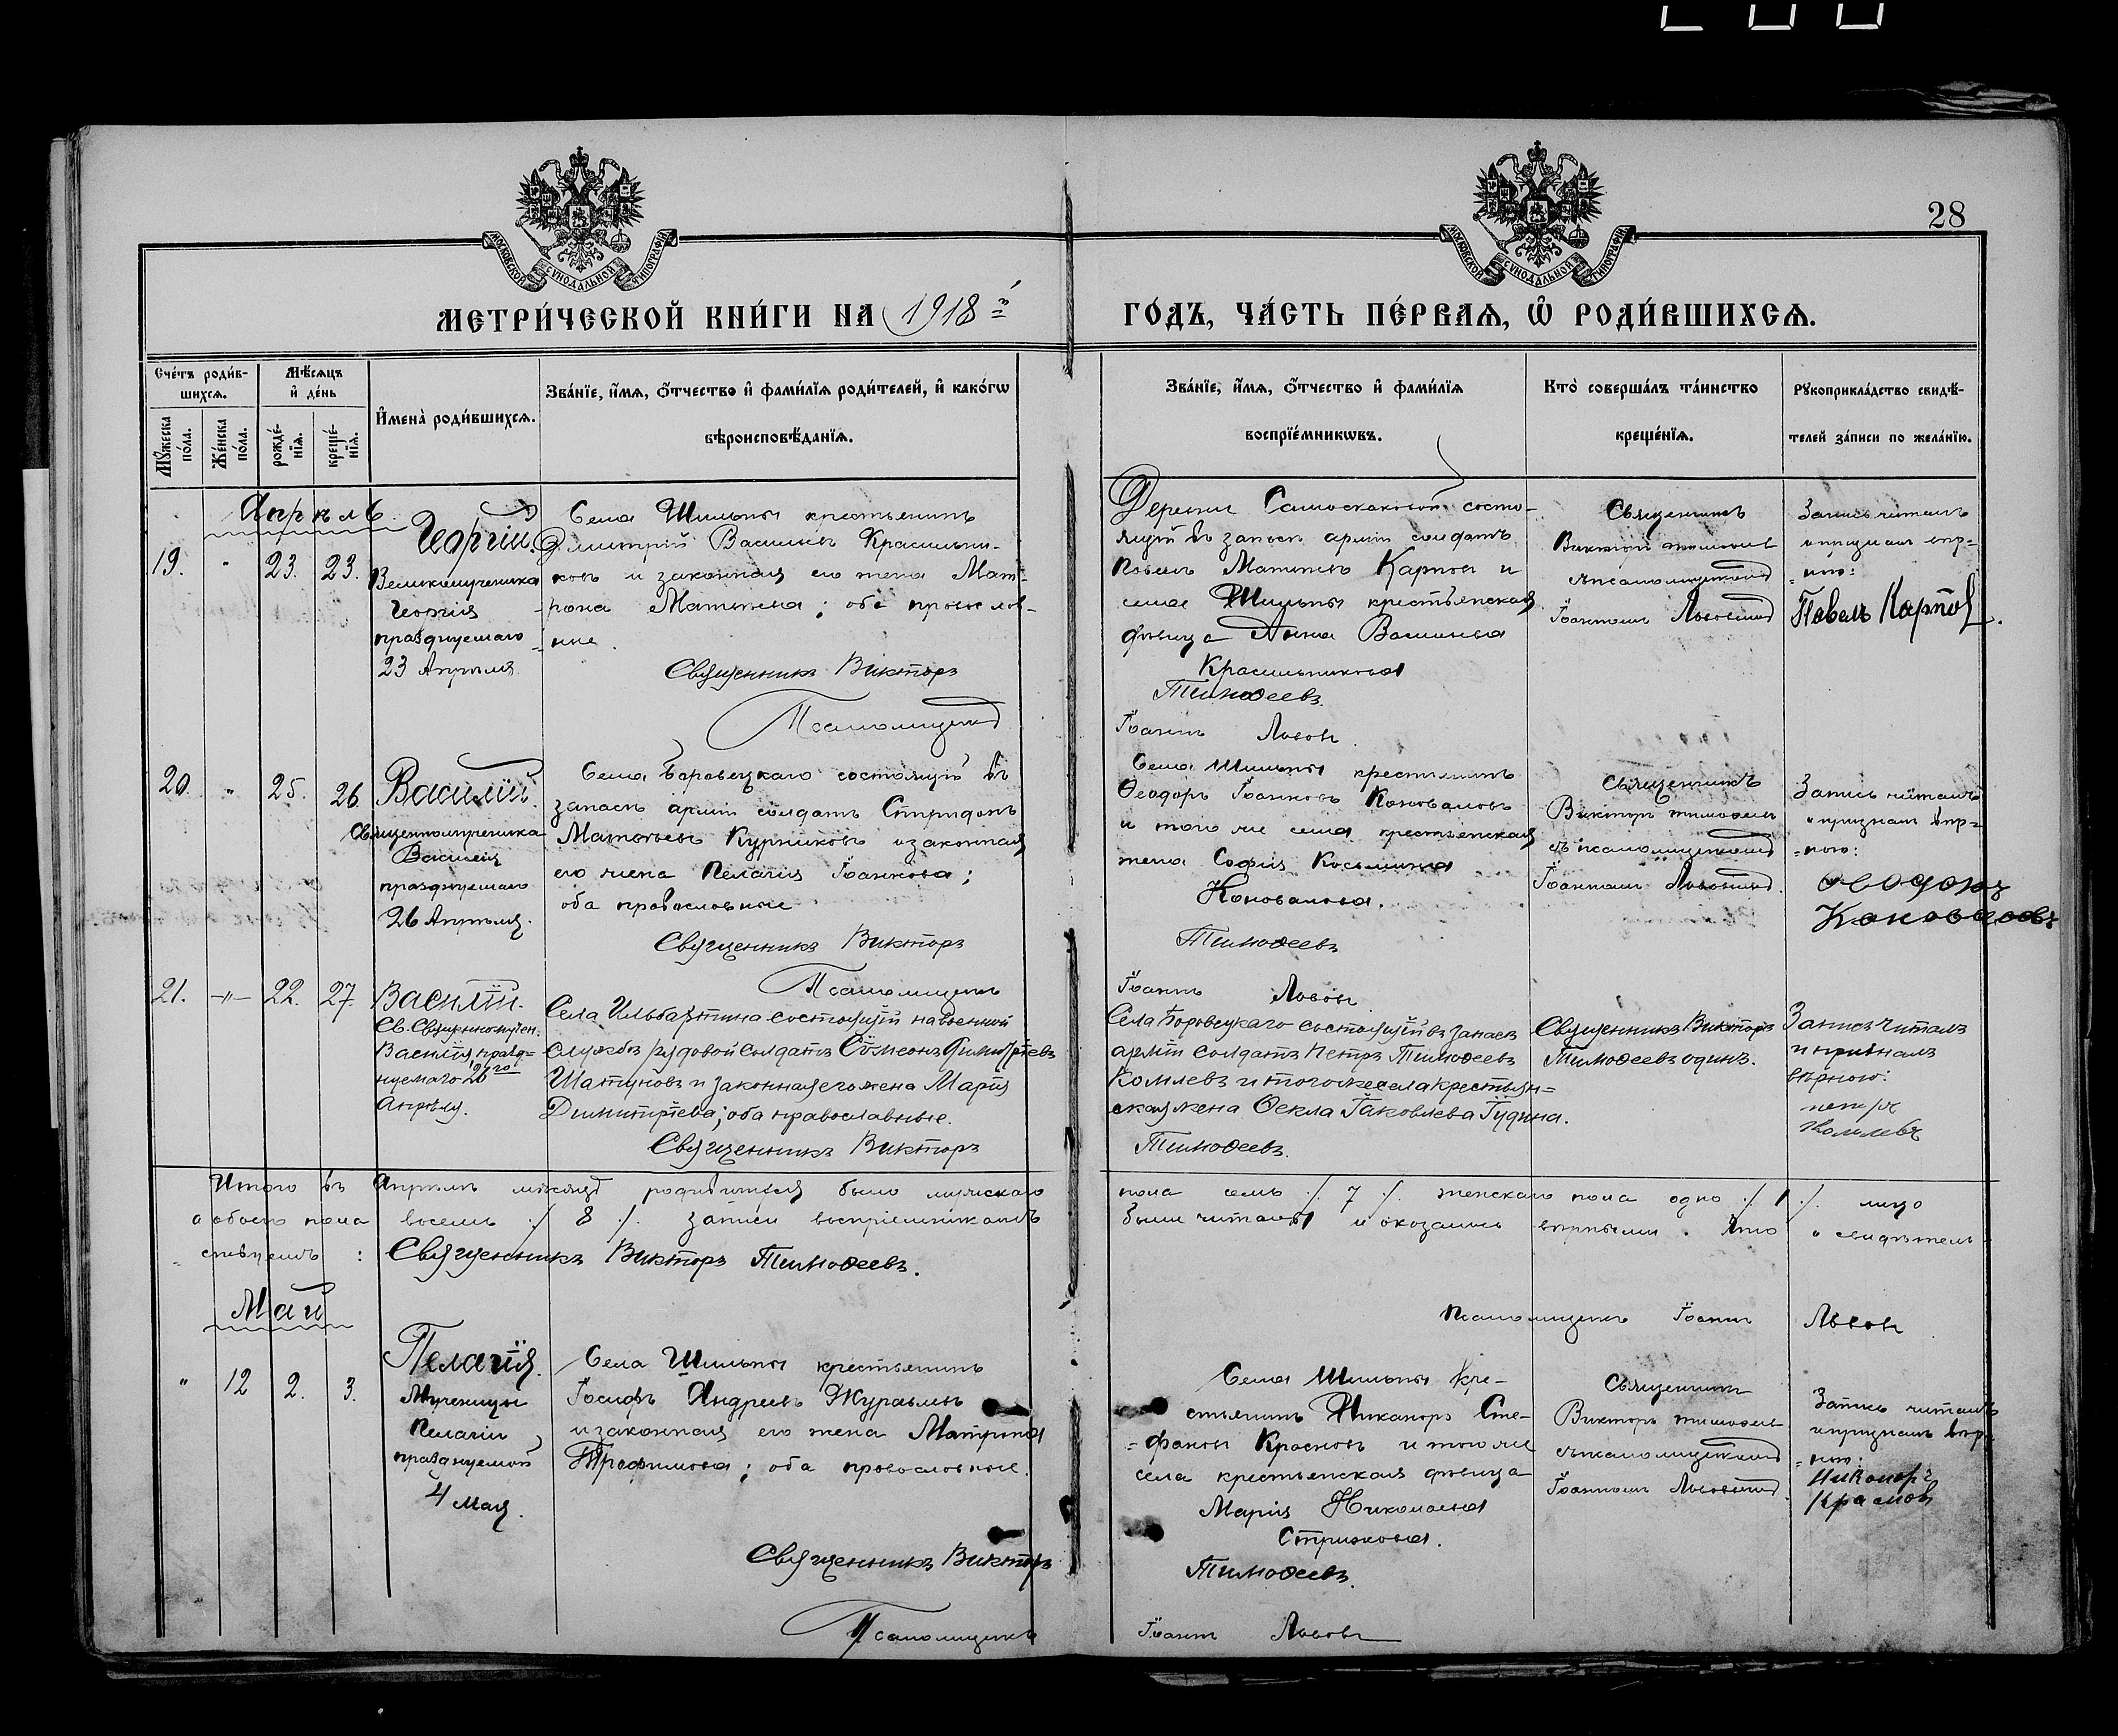 28
МОСКОВСКОЙ СѴНОДАЛЬНОЙ ТИПОГРАФІИ
МОСКОВСКОЙ СѴНОДАЛЬНОЙ ТИПОГРАФІИ
МЕТРИ́ЧЕСКОЙ КНИ́ГИ НА 1918й ГО́ДЪ, ЧА́СТЬ ПЕ́РВАѦ, Ѡ҆ РОДИ́ВШИХСѦ.
Сче́тъ роди́в-
шихсѧ.
Мѣ́сѧцъ
и҆ де́нь
Мꙋ́жеска по́ла.
Же́нска по́ла.
рожде́-
нїѧ.
креще́-
нїѧ.
И҆мена̀ роди́вшихсѧ.
Зва́нїе, и҆́мѧ, о҆́тчество и҆ фами́лїѧ роди́телей, и҆ како́гѡ
вѣроисповѣ́данїѧ.
Зва́нїе, и҆́мѧ, о҆́тчество и҆ фами́лїѧ
воспрїе́мникѡвъ.
Кто̀ соверша́лъ та́инство
креще́нїѧ.
Рꙋкоприкла́дство свидѣ́-
телей за́писи по жела́нїю.
Апрѣль
19. " 23. 23.
Георгій.
Великомученика
Георгія
празднуемаго
23 Апрѣля.
Села Шильны крестьянинъ
Димитрій Васильевъ Красильни-
ковъ и законная его жена Мат-
рона Матѳеева; оба православ-
ные.
Священникъ Викторъ
Псаломщикъ
Деревни Самоскаковой состо-
ящій въ запасѣ арміи солдатъ
Павелъ Матѳеевъ Карповъ и
села Шильны крестьянская
дѣвица Анна Васильева
Красильникова
Тимоѳеевъ.
Іоаннъ Львовъ.
Священникъ
Викторъ Тимоѳеевъ
съ псаломщикомъ
Іоанномъ Львовымъ
Запись читалъ
и призналъ вѣр-
ною:
Павелъ Карповъ.
20. " 25. 26.
Василій.
Священномученика
Василія
празднуемаго
26 Апрѣля.
Села Боровецкаго состоящій въ
запасѣ арміи солдатъ Спиридонъ
Матѳеевъ Курниковъ и законная
его жена Пелагія Іоаннова;
оба православные
Священникъ Викторъ
Псаломщикъ
Села Шильны крестьянинъ
Ѳеодоръ Іоанновъ Коноваловъ
и того же села крестьянская
жена Софія Косьмина
Коновалова.
Тимоѳеевъ
Іоаннъ Львовъ
Священникъ
Викторъ Тимоѳеевъ
съ псаломщикомъ
Іоанномъ Львовымъ.
Запись читалъ
и призналъ вѣр-
ною:
Коноваловъ
21. —"— 22. 27.
Василій.
Св. Священномучен.
Василія, празд-
нуемаго 26го
Апрѣля.
Села Ильбахтина состоящій на военной
службѣ рядовой солдатъ Сѵмеонъ Димитріевъ
Шатуновъ и законная его жена Марія
Димитріева; оба православные.
Священникъ Викторъ
Села Боровецкаго состоящій въ запасѣ
арміи солдатъ Петръ Тимоѳеевъ
Комлевъ и того же села крестьян-
ская жена Ѳекла Іаковлева Гудина.
Тимоѳеевъ.
Священникъ Викторъ
Тимоѳеевъ одинъ.
Запись читалъ
и призналъ
вѣрною:
петръ
Комлевъ
Итого въ Апрѣлѣ мѣсяцѣ родившихся было мужскаго пола семь ./. 7 ./. женскаго пола одно ./. 1 ./. лицо
а обоего пола восемь ./. 8 ./. записи воспріемникамъ были читаны и оказались вѣрными. Что и свидѣтель-
ствуемъ: Священникъ Викторъ Тимоѳеевъ.
Псаломщикъ Іоаннъ Львовъ
Май
" 12 2. 3.
Пелагія.
Мученицы
Пелагіи,
празднуемой
4 Мая.
Села Шильны крестьянинъ
Іосифъ Андреевъ Журавлевъ
и законная его жена Матрона
Трофимова; оба православные.
Священникъ Викторъ
Псаломщикъ
Села Шильны кре-
стьянинъ Никаноръ Сте-
фановъ Красновъ и того же
села крестьянская дѣвица
Марія Николаева
Стрижкова.
Тимоѳеевъ.
Іоаннъ Львовъ
Священникъ
Викторъ Тимоѳеевъ
съ псаломщикомъ
Іоанномъ Львовымъ.
Запись читалъ
и призналъ вѣр-
ною:
Никаноръ
Красновъ